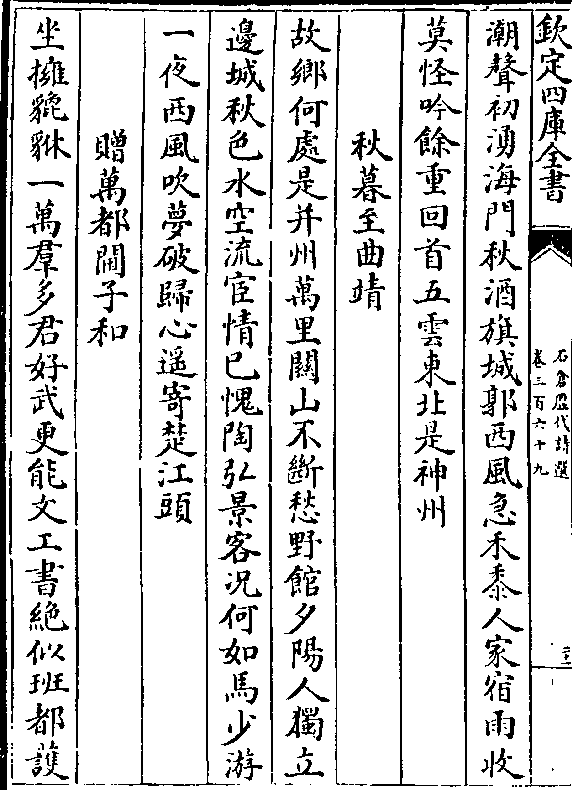 欽定四庫全書
石倉歷代詩選
卷三百六十九
潮聲初湧海門秋酒旗城郭西風急禾黍人家宿雨收
莫怪吟餘重回首五雲東北是神州
秋暮至曲靖
故鄉何處是并州萬里關山不斷愁野館夕陽人獨立
邊城秋色水空流宦情已愧陶弘景客况何如馬少游
一夜西風吹夢破歸心遥寄楚江頭
贈萬都閫子和
坐擁貔貅一萬羣多君好武更能文工書絶似班都護